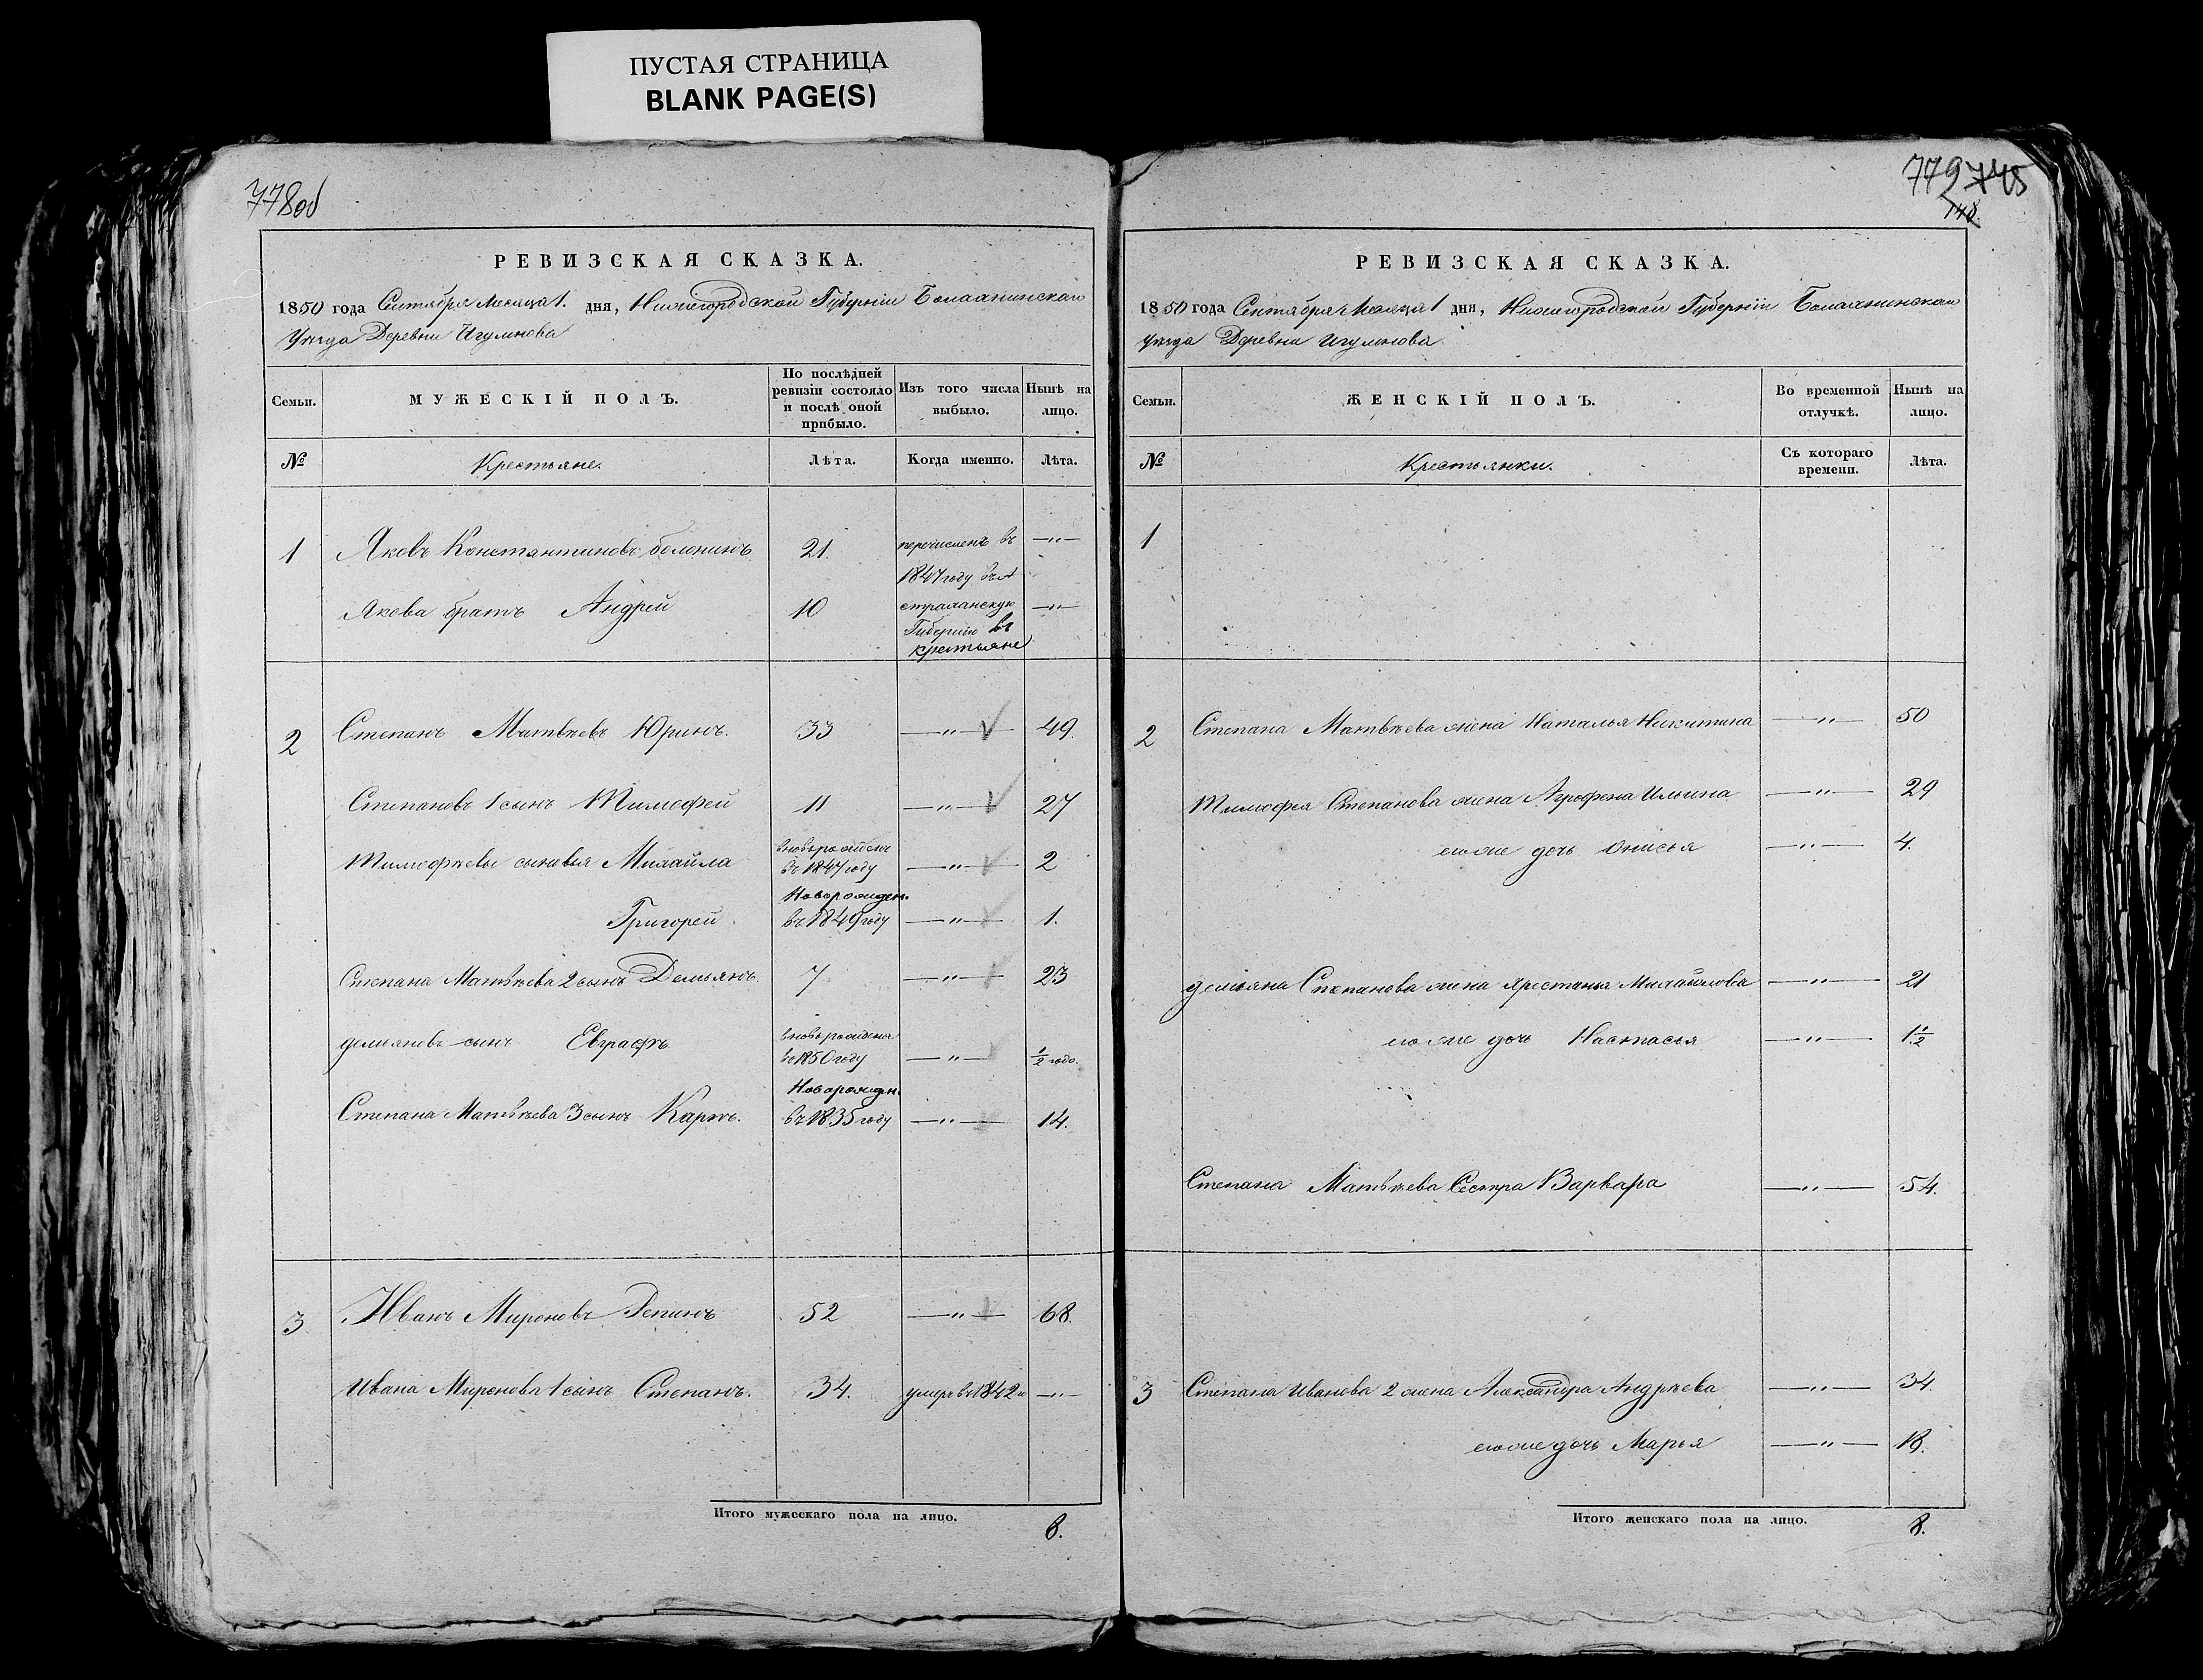 ПУСТАЯ СТРАНИЦА
BLANK PAGE(S)
778об
РЕВИЗСКАЯ СКАЗКА.
1850 года Сентября Месяца 1. дня, Нижегородской Губернiи Балахнинскаго
Уѣзда Деревни Игумнова
Семьи.
МУЖЕСКІЙ ПОЛЪ.
По послѣдней ревизіи состояло и послѣ оной прибыло.
Изъ того числа выбыло.
Нынѣ на лицо.
№
Крестьяне.
Лѣта.
Когда именно.
Лѣта.
1 Яковъ Константиновъ 21. перечисленъ въ —"—
1847 году въ А
Якова братъ Андрей 10 страханскую —"—
Губернію въ
крестьяне
2 Степанъ Матвѣевъ Юринъ. 33 —"— 49.
Степановъ 1 сынъ Тимофей 11 —"— 27
Тимофѣевы сыновья Михайла вновь рожденъ въ 1847 году —"— 2
Григорей. Новорожден. въ 1849 году —"— 1.
Степана Матвѣева 2 сынъ Демьянъ. 7 —"— 23
демьяновъ сынъ Евграфъ вновь рожденъ въ 1850 году —"— 1/2 года.
Степана Матвѣева 3 сынъ Карпъ. Новорожден. въ 1835 году —"— 14.
3 Иванъ Мироновъ Репинъ 52 —"— 68.
Ивана Миронова 1 сынъ Степанъ. 34. умеръ въ 1842 —"—
Итого мужескаго пола на лицо. 8.
779 745
148.
РЕВИЗСКАЯ СКАЗКА.
1850 года Сентября Месяца 1 дня, Нижегородской Губерніи Балахнинскаго
уѣзда Деревни Игумнова
Семьи.
ЖЕНСКІЙ ПОЛЪ.
Во временной отлучкѣ.
Нынѣ на лицо.
№
Крестьянки.
Съ котораго времени.
Лѣта.
1
2 Степана Матвѣева жена Наталья Никитина —"— 50
Тимофея Степанова жена Аграфена Ильина —"— 29
ево же дочь Онисья —"— 4.
демьяна Степанова жена Хрестинья Михайлова —"— 21
ево же дочь Настасья —"— 1 1/2
Степана Матвѣева Сестра Варвара —"— 54.
3 Степана Иванова 2 жена Александра Андрѣева —"— 34.
ево же дочь Марья —"— 18.
Итого женскаго пола на лицо. 8.